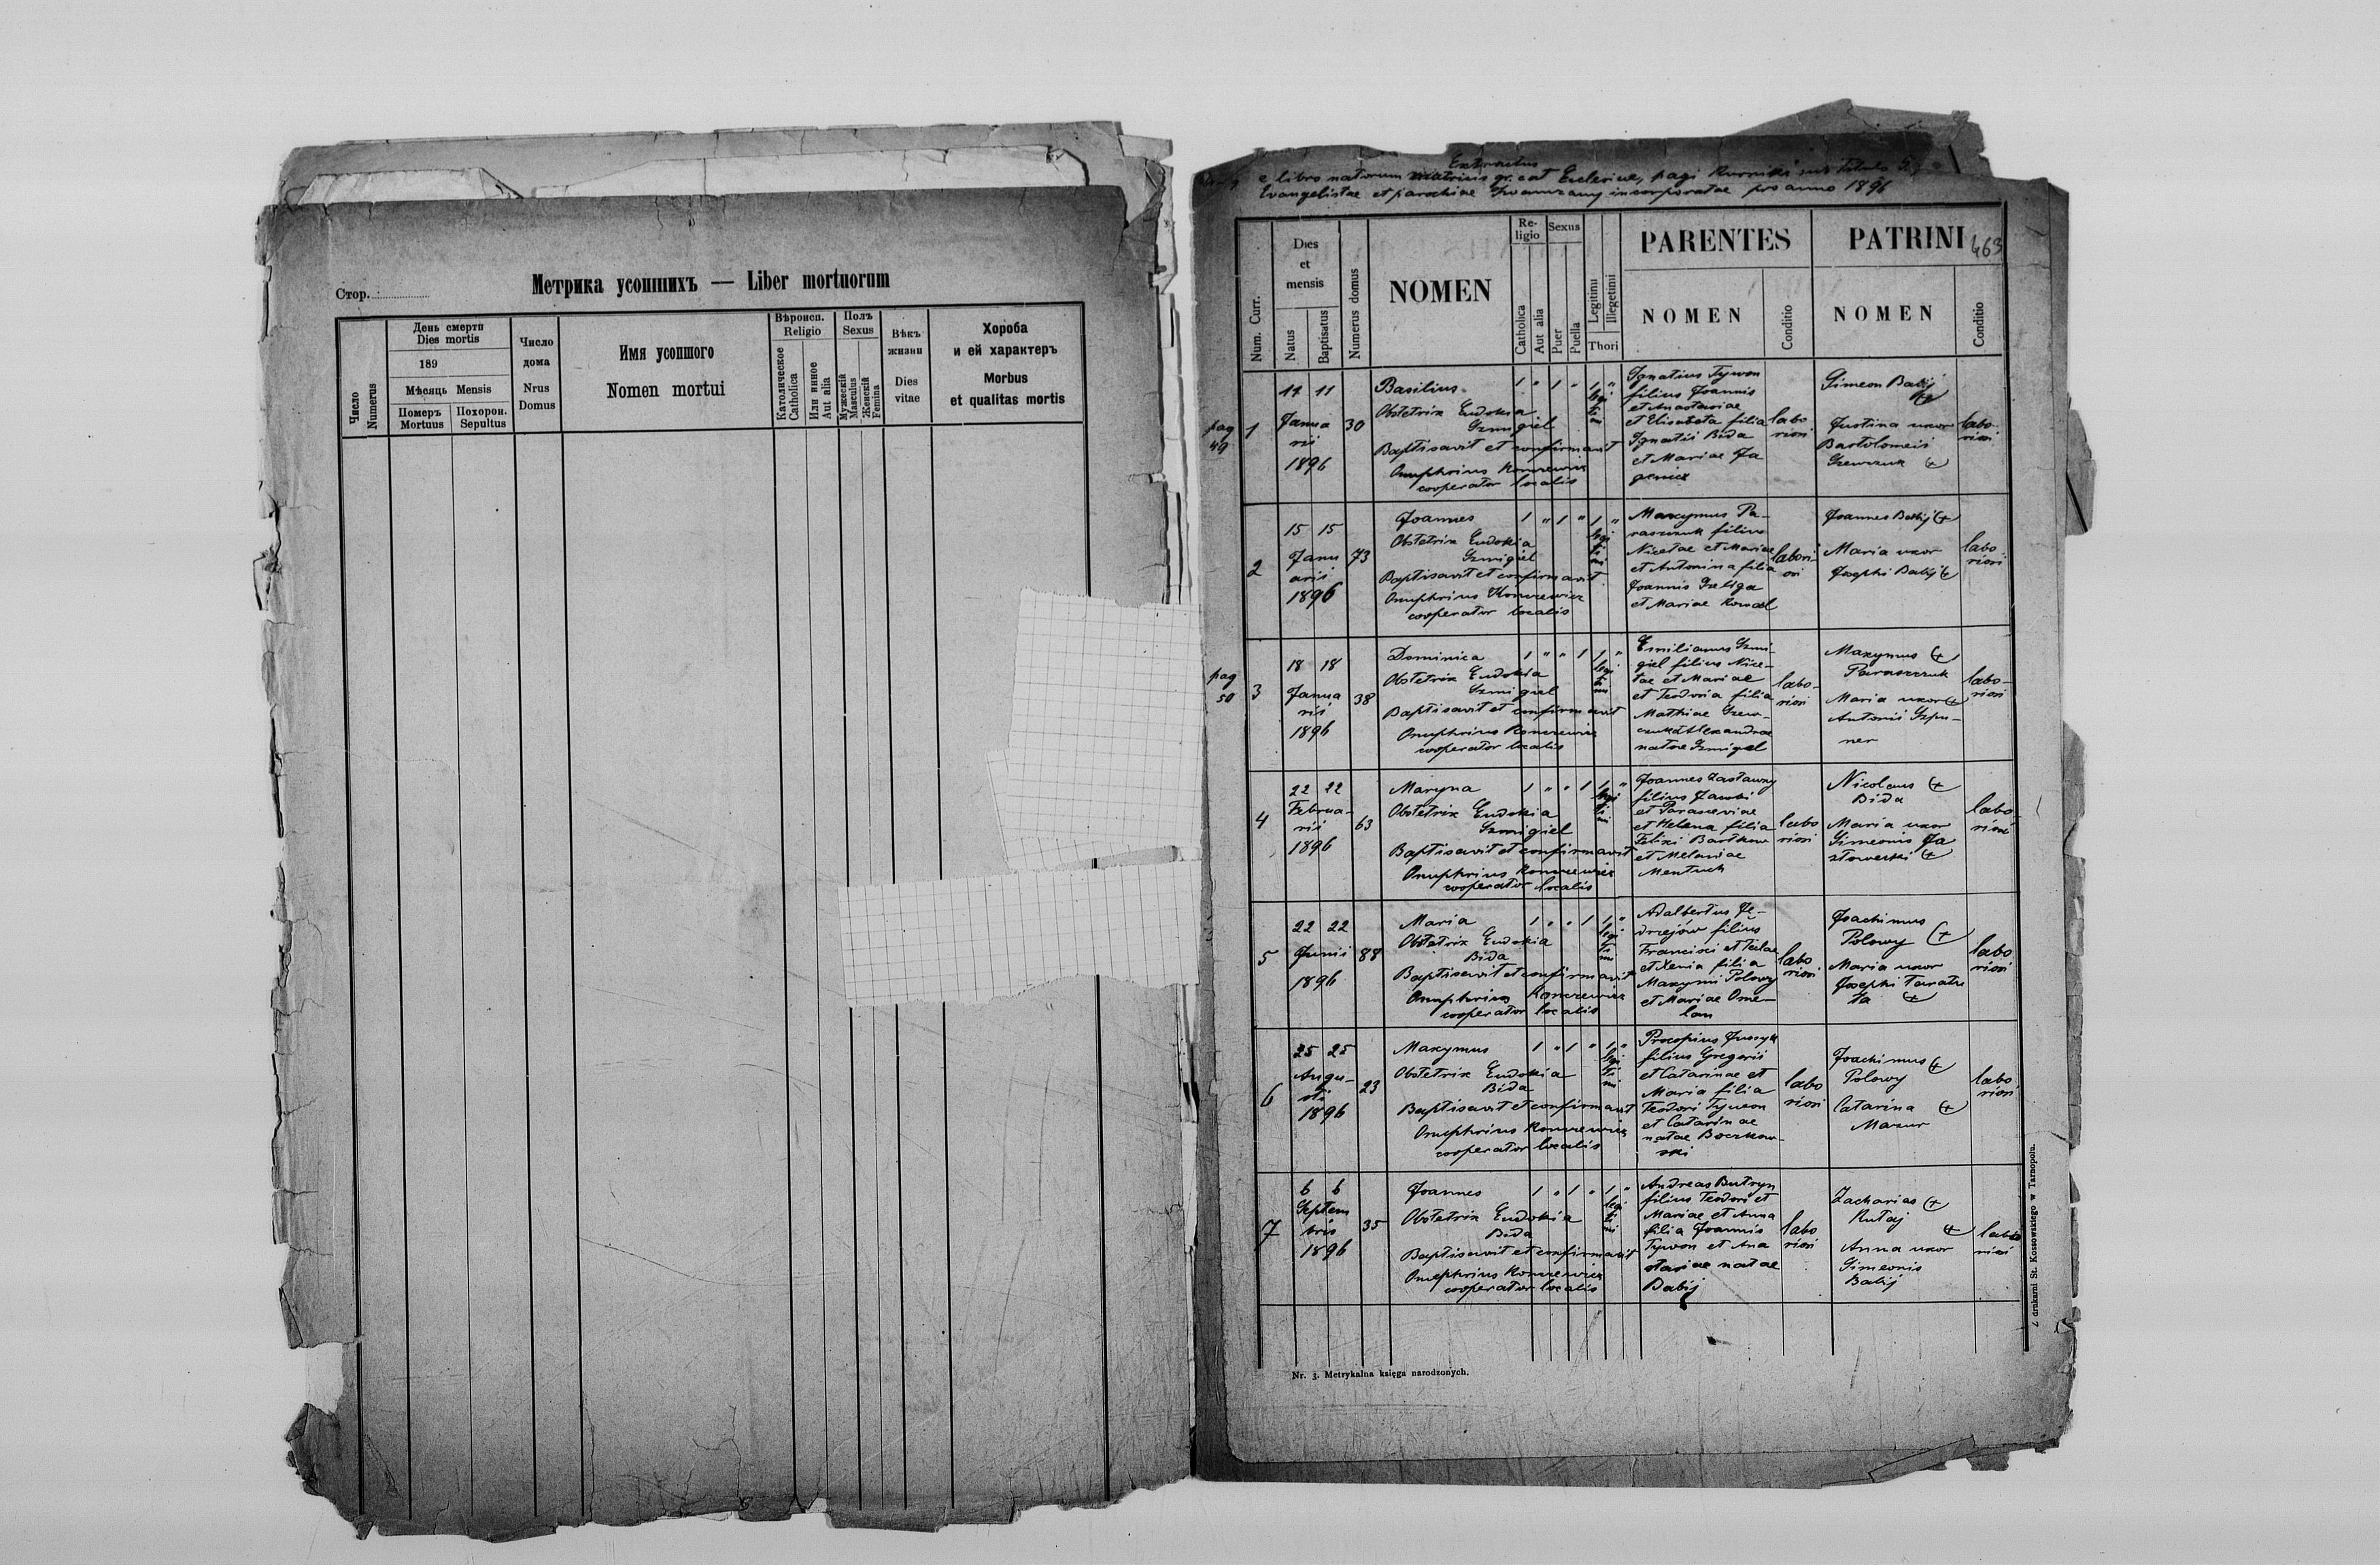 Стор.
Метрика усопшихъ — Liber mortuorum
Число
Numerus
День смерти
Dies mortis
189
Мѣсяць Mensis
Померъ
Mortuus
Похорон.
Sepultus
Число
дома
Nrus
Domus
Имя усопшого
Nomen mortui
Вѣроисп.
Religio
Католическое
Catholica
Или инное
Aut alia
Полъ
Sexus
Мужескій
Masculus
Женскій
Femina
Вѣкъ
жизни
Dies
vitae
Хороба
и ей характеръ
Morbus
et qualitas mortis
Extractus
e libro natorum matricis gr. cat Ecclesiae, pagi Kurniki sub titulo
Evangelistae et parochiae Iwanczany incorporatae pro anno 1896
463
Num. Curr.
Dies
et
mensis
Natus
Baptisatus
Numerus domus
NOMEN
Religio
Catholica
Aut alia
Sexus
Puer
Puella
Legitimi
Illegetimi
Thori
PARENTES
NOMEN
Conditio
PATRINI
NOMEN
Conditio
pag
49
1
11 11
Janua
rii
1896
30
Basilius
Obstetrix Eudokia
Szmigiel
Baptisavit et confirmavit
Onuphrius Konczewicz
cooperator localis
1 " 1 " 1 "
legi
ti
mi
Ignatius Tywon
filius Joannis
et Anastasiae
et Elisabeta filia
Ignatii Bida
et Mariae Ja
genicz
labo
riosi
Simeon Babij
Justina uxor
Bartolomeis
Szewczuk
labo
riosi
2
15 15
Janu
arii
1896
73
Joannes
Obstetrix Eudokia
Szmigiel
Baptisavit et confirmavit
Onuphrius Konczewicz
cooperator localis
1 " 1 " 1 "
legi
ti
mi
Maxymus Pa-
raszczuk filius
Nicetae et Mariae
et Antonina filia
Joannis Szeliga
et Mariae Kowal
labori
osi
Joannes Babij
Maria uxor
Josephi Babij
labo
riosi
pag
50
3
18 18
Janua
rii
1896
38
Dominica
Obstetrix Eudokia
Szmigiel
Baptisavit et confirmavit
Onuphrius Konczewicz
cooperator localis
1 " " 1 1 "
legi
ti
mi
Emilianus Szmi-
giel filius Nice-
tae et Mariae
et Teodoria filia
Mathiae Szew-
czuk et Alexandrae
natae Szmigel
labo-
riosi
Maxymus
Paraszczuk
Maria uxor
Antonii Szpu-
ner
labo-
riosi
4
22 22
Februa-
rii
1896
63
Maryna
Obstetrix Eudokia
Szmigiel
Baptisavit et confirmavit
Onuphrius Konczewicz
cooperator localis
1 " " 1 1 "
legi
ti
mi
Joannes Zastawny
filius Jacobi
et Parasceviae
et Helena filia
Felixi Bartkow
et Melaniae
Mentuch
labo
riosi
Nicolaus
Bida
Maria uxor
Simeonis Ja
złowecki
labo
riosi
5
22 22
Junii
1896
88
Maria
Obstetrix Eudokia
Bida
Baptisavit et confirmavit
Onuphrius Konczewicz
cooperator localis
1 " " 1 1 "
legi
ti
mi
Adalbertus Ję-
drzejów filius
Francisci et Teclae
et Xenia filia
Maxymi Polowy
et Mariae Ome-
lan
labo
riosi
Joachimus
Polowy
Maria uxor
Josephi Taratu
ta
labo
riosi
6
25 25
Augu-
sti
1896
23
Maxymus
Obstetrix Eudokia
Bida
Baptisavit et confirmavit
Onuphrius Konczewicz
cooperator localis
1 " 1 " 1 "
legi
ti
mi
Procopius
filius Gregorii
et Catarinae et
Maria filia
Teodori Tywon
et Catarinae
natae Boczkow-
ski
labo
riosi
Joachimus
Polowy
Catarina
Mazur
labo
riosi
7
6 6
Septem
bris
1896
35
Joannes
Obstetrix Eudokia
Bida
Baptisavit et confirmavit
Onuphrius Konczewicz
cooperator localis
1 " 1 " 1 "
legi
ti
mi
Andreas Butryn
filius Teodori et
Mariae et Anna
filia Joannis
Tywon et Ana
stasiae natae
Babij
labo
riosi
Zacharias
Kutaj
Anna uxor
Simeonis
Babij
labo
riosi
Nr. 3. Metrykalna księga narodzonych.
Z drukarni St. Kossowskiego w Tarnopolu.